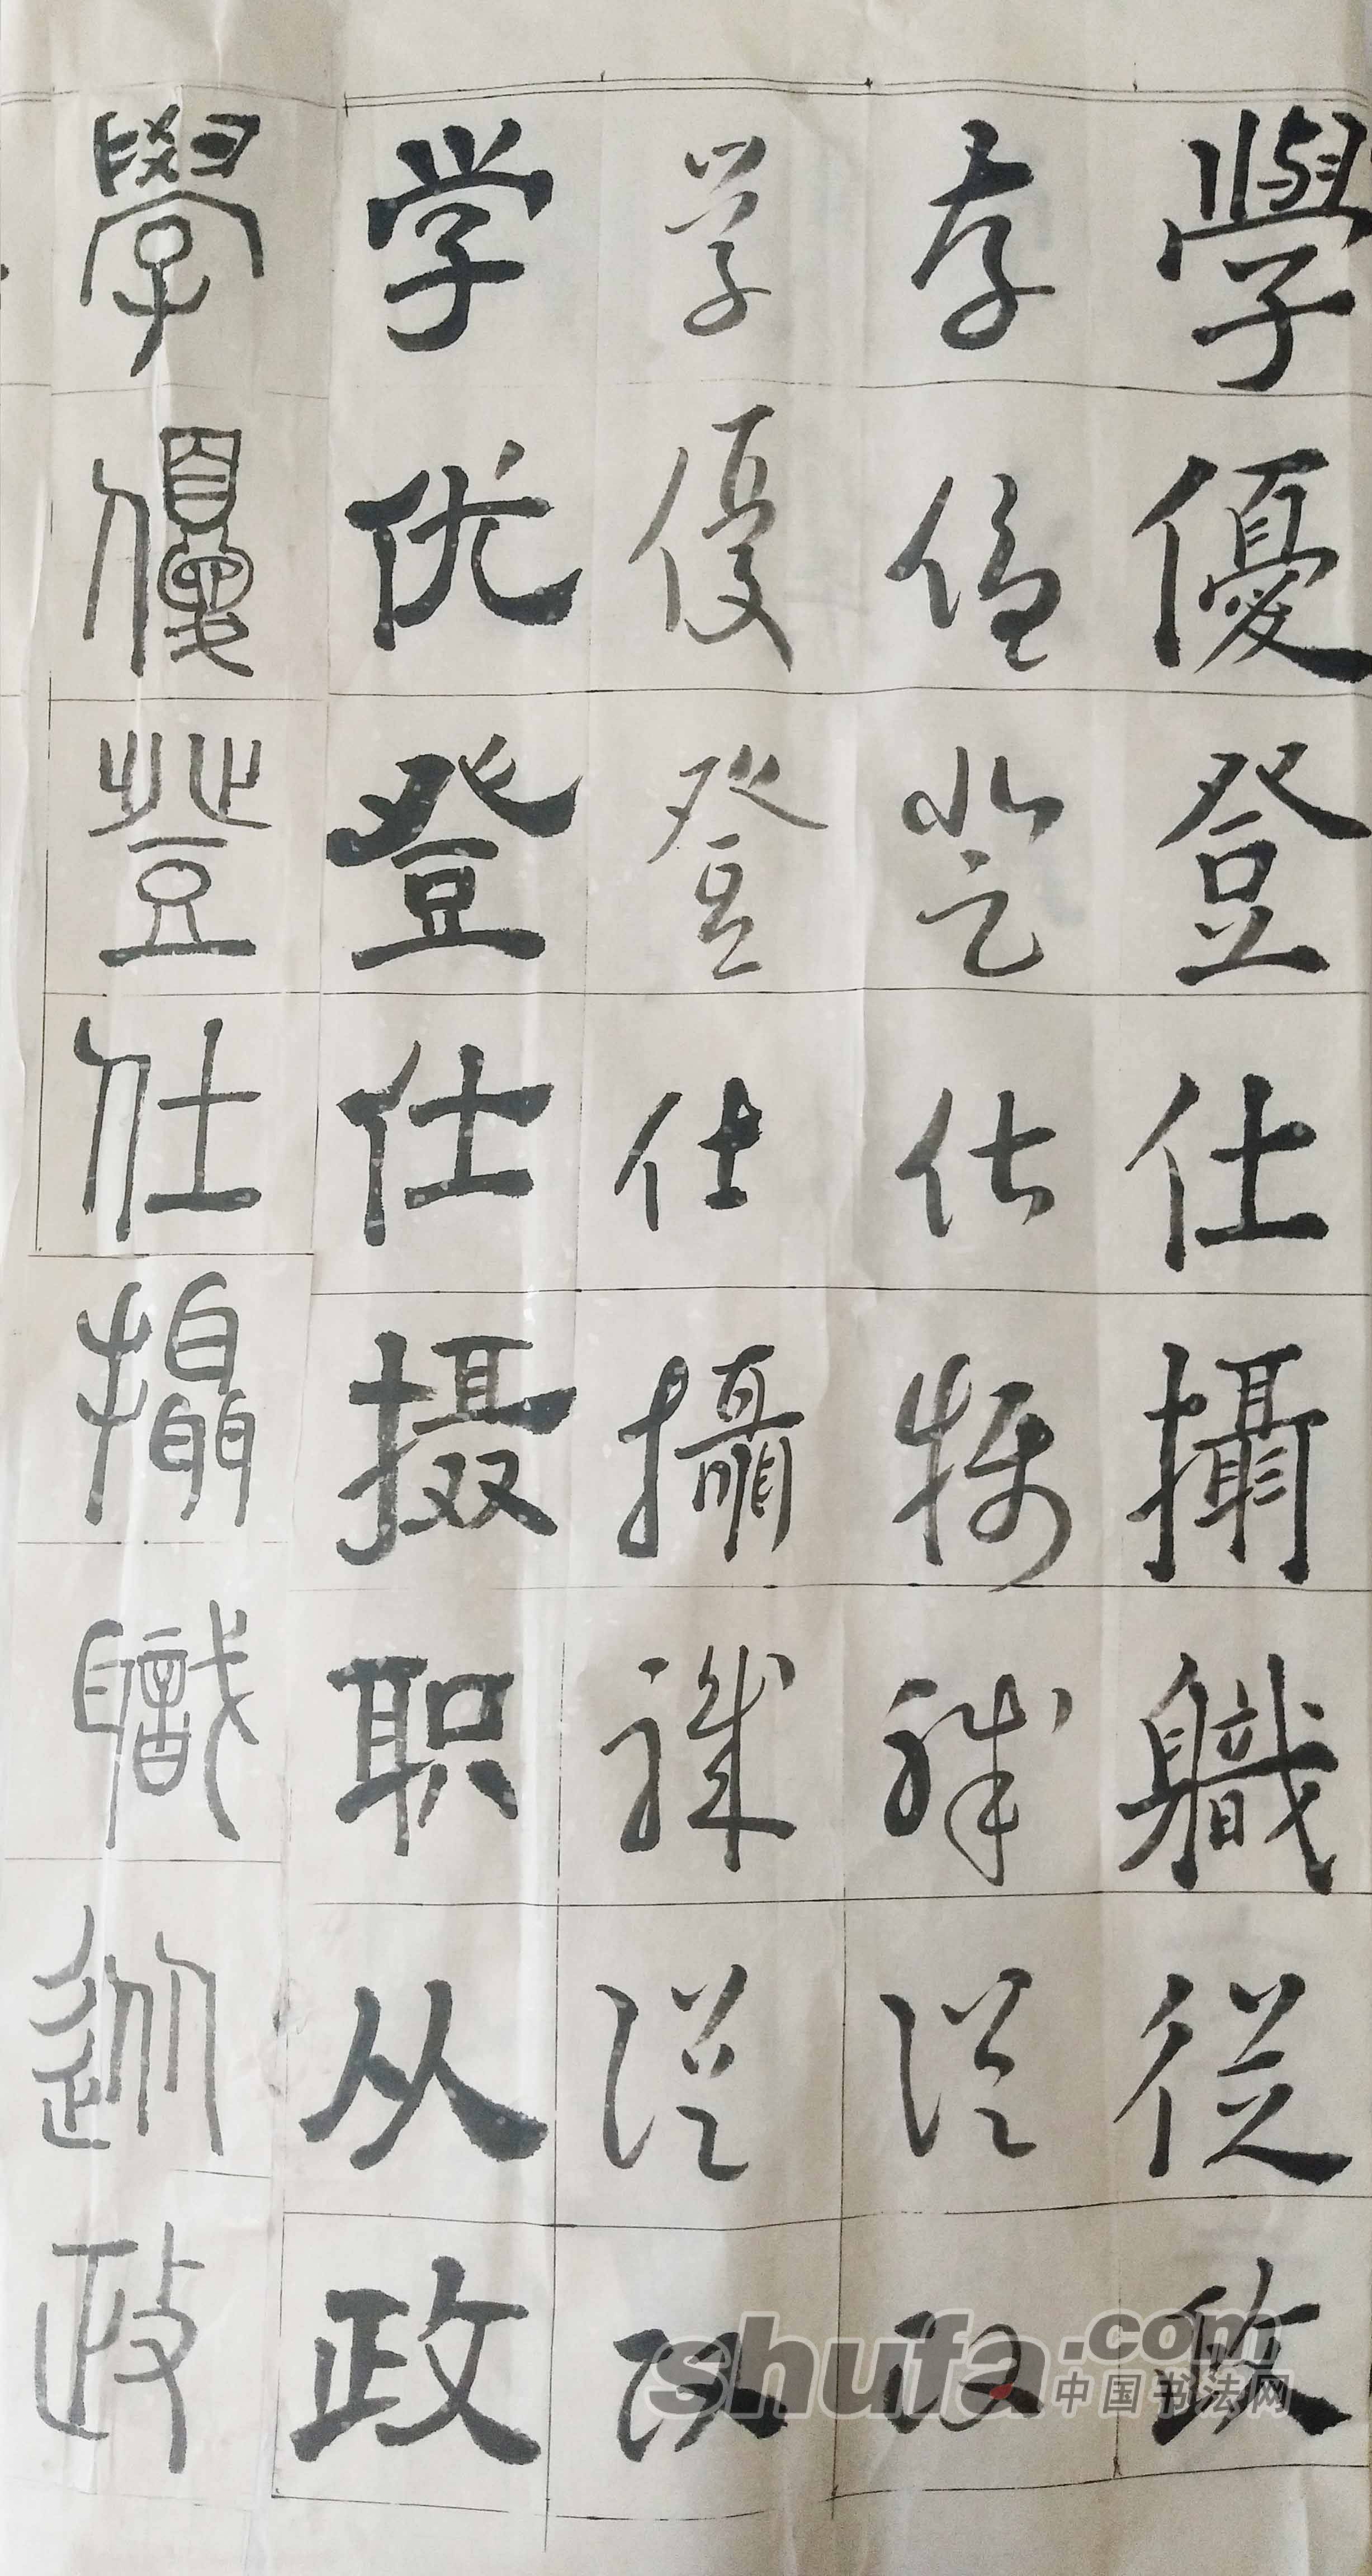 學優登仕攝職從政
学優登仕攝職從政
学優登仕攝職從政
学优登仕摄职从政
學優登仕攝職從政
shufa.com
中国书法网